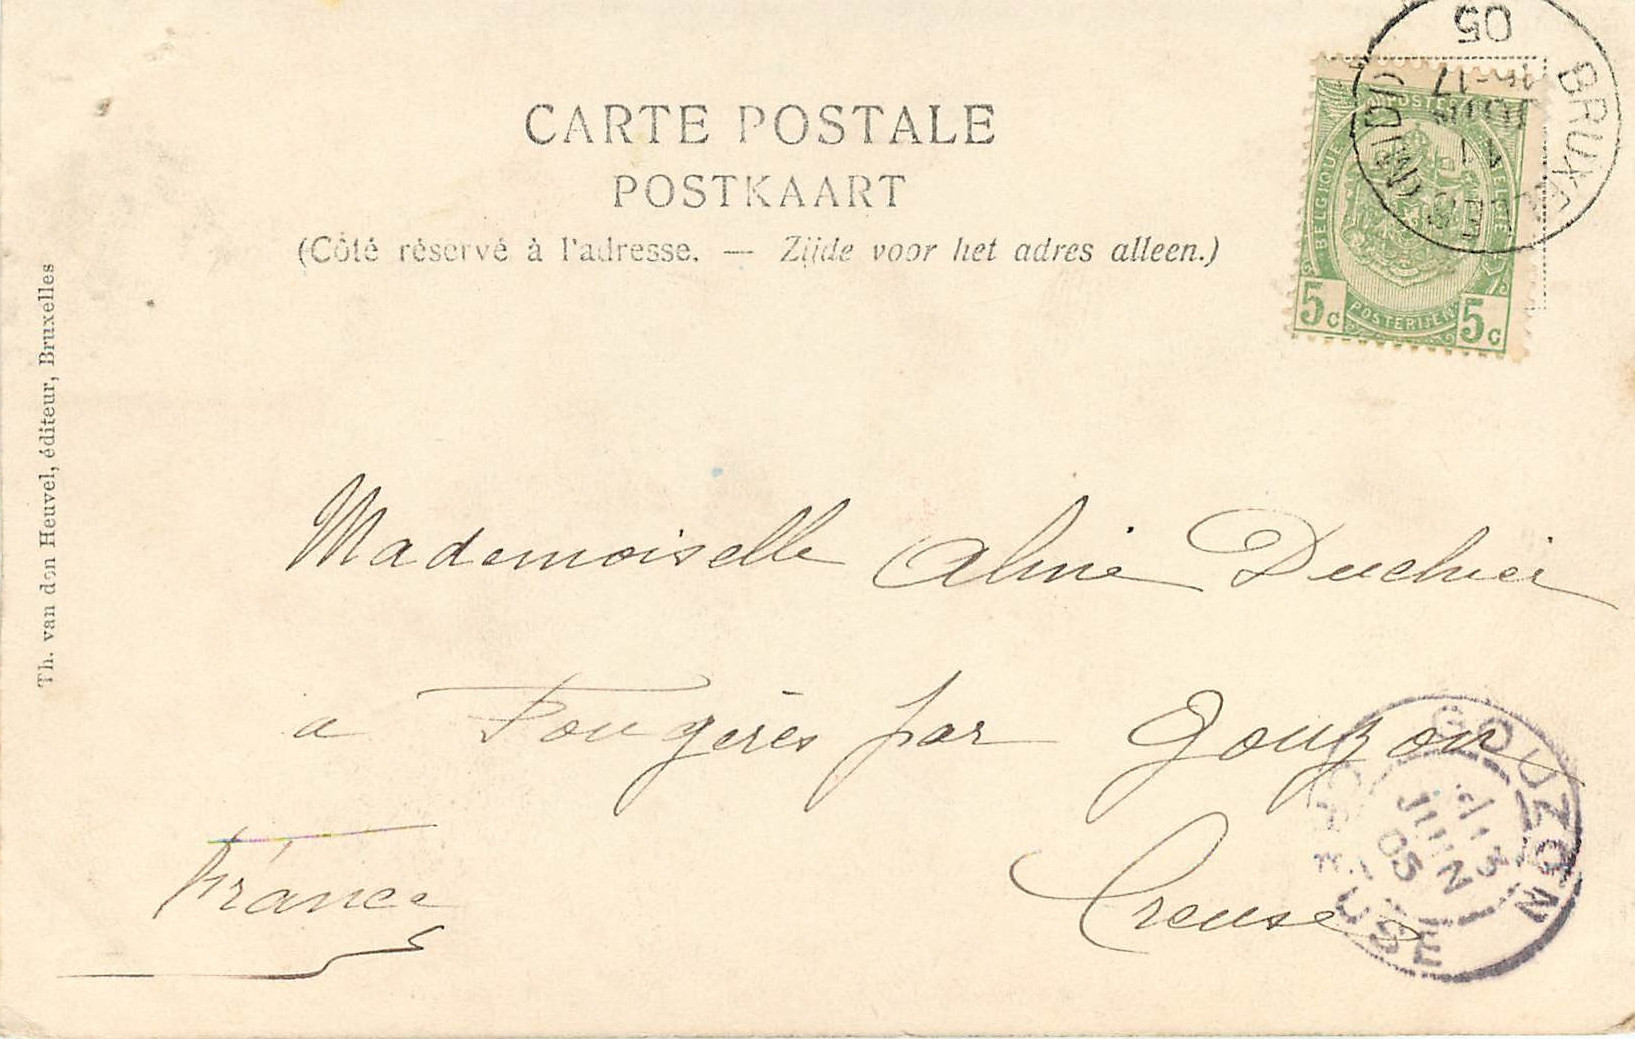 CARTE POSTALE
POSTKAART
(Côté réservé à l'adresse. — Zijde voor het adres alleen.)
Th. van den Heuvel, éditeur, Bruxelles
BELGIQUE POSTES BELGIE
5c POSTERIJEN 5c
BRUXELLES (MIDI)
JUIN
16-17
05
Mademoiselle Aline Duchier
a Fougères par Gouzon
Creuse
France
GOUZON
13
JUIN
05
CREUSE